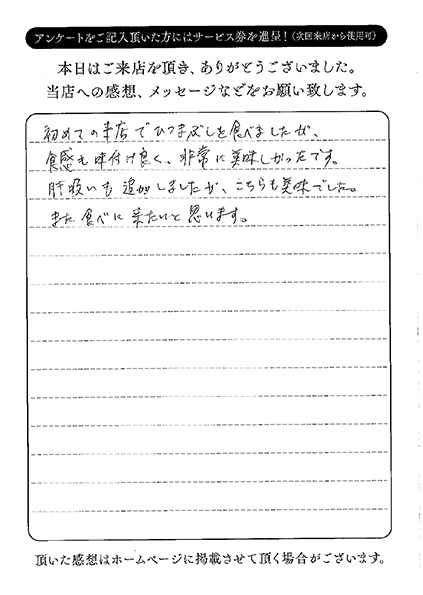 アンケートをご記入頂いた方にはサービス券を進呈!(次回来店から使用可)
本日はご来店を頂き、ありがとうございました。
当店への感想、メッセージなどをお願い致します。
初めての来店でひつまぶしを食べましたが、
食感も味付け良く、非常に美味しかったです。
肝吸いも追加しましたが、こちらも美味でした。
また食べに来たいと思います。
頂いた感想はホームページに掲載させて頂く場合がございます。